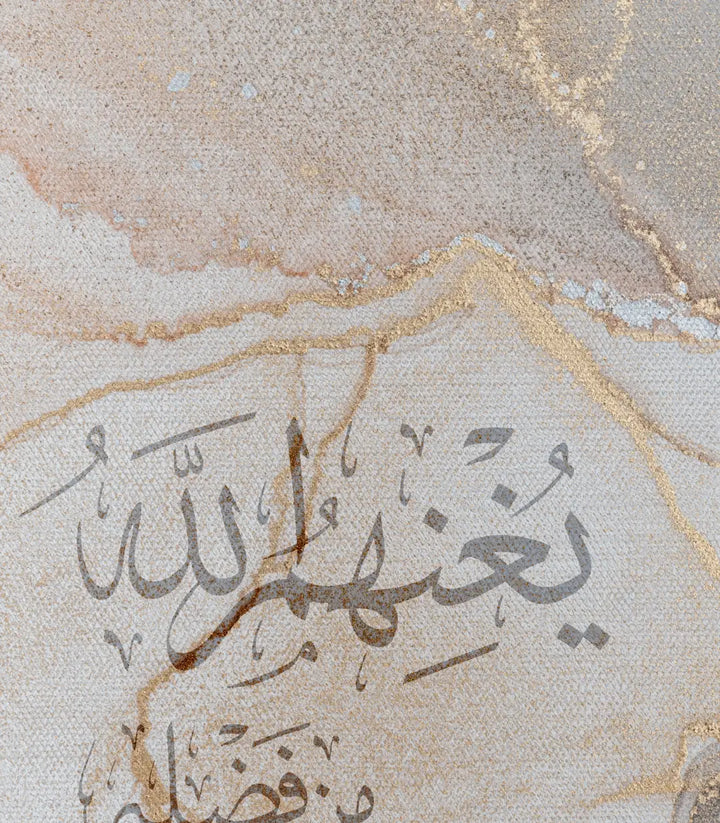 يُغْنِهِمُ اللَّهُ
مِن فَضْلِهِ